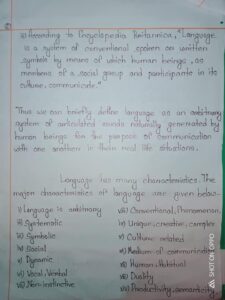 iii) According to Encyclopedia Britannica, "Language
is a system of conventional spoken or written
symbols by means of which human beings, as
members of a social group and participate in its
culture, communicate."
Thus we can briefly define language as an arbitrary
system of articulated sounds naturally generated by
human beings for the purpose of communication
with one another in their real life situations.
Language has many characteristics. The
major characteristics of language are given below-
i) Language is arbitrary
ii) Systematic
iii) Symbolic
iv) Social
v) Dynamic
vi) Vocal, Verbal
vii) Non-instinctive
viii) Conventional, Phenomenon.
ix) Unique, creative, complex
x) Culture related
xi) Medium of communication
xii) Human, Habitual
xiii) Duality
xiv) Productivity, semanticity
SHOT ON OPPO